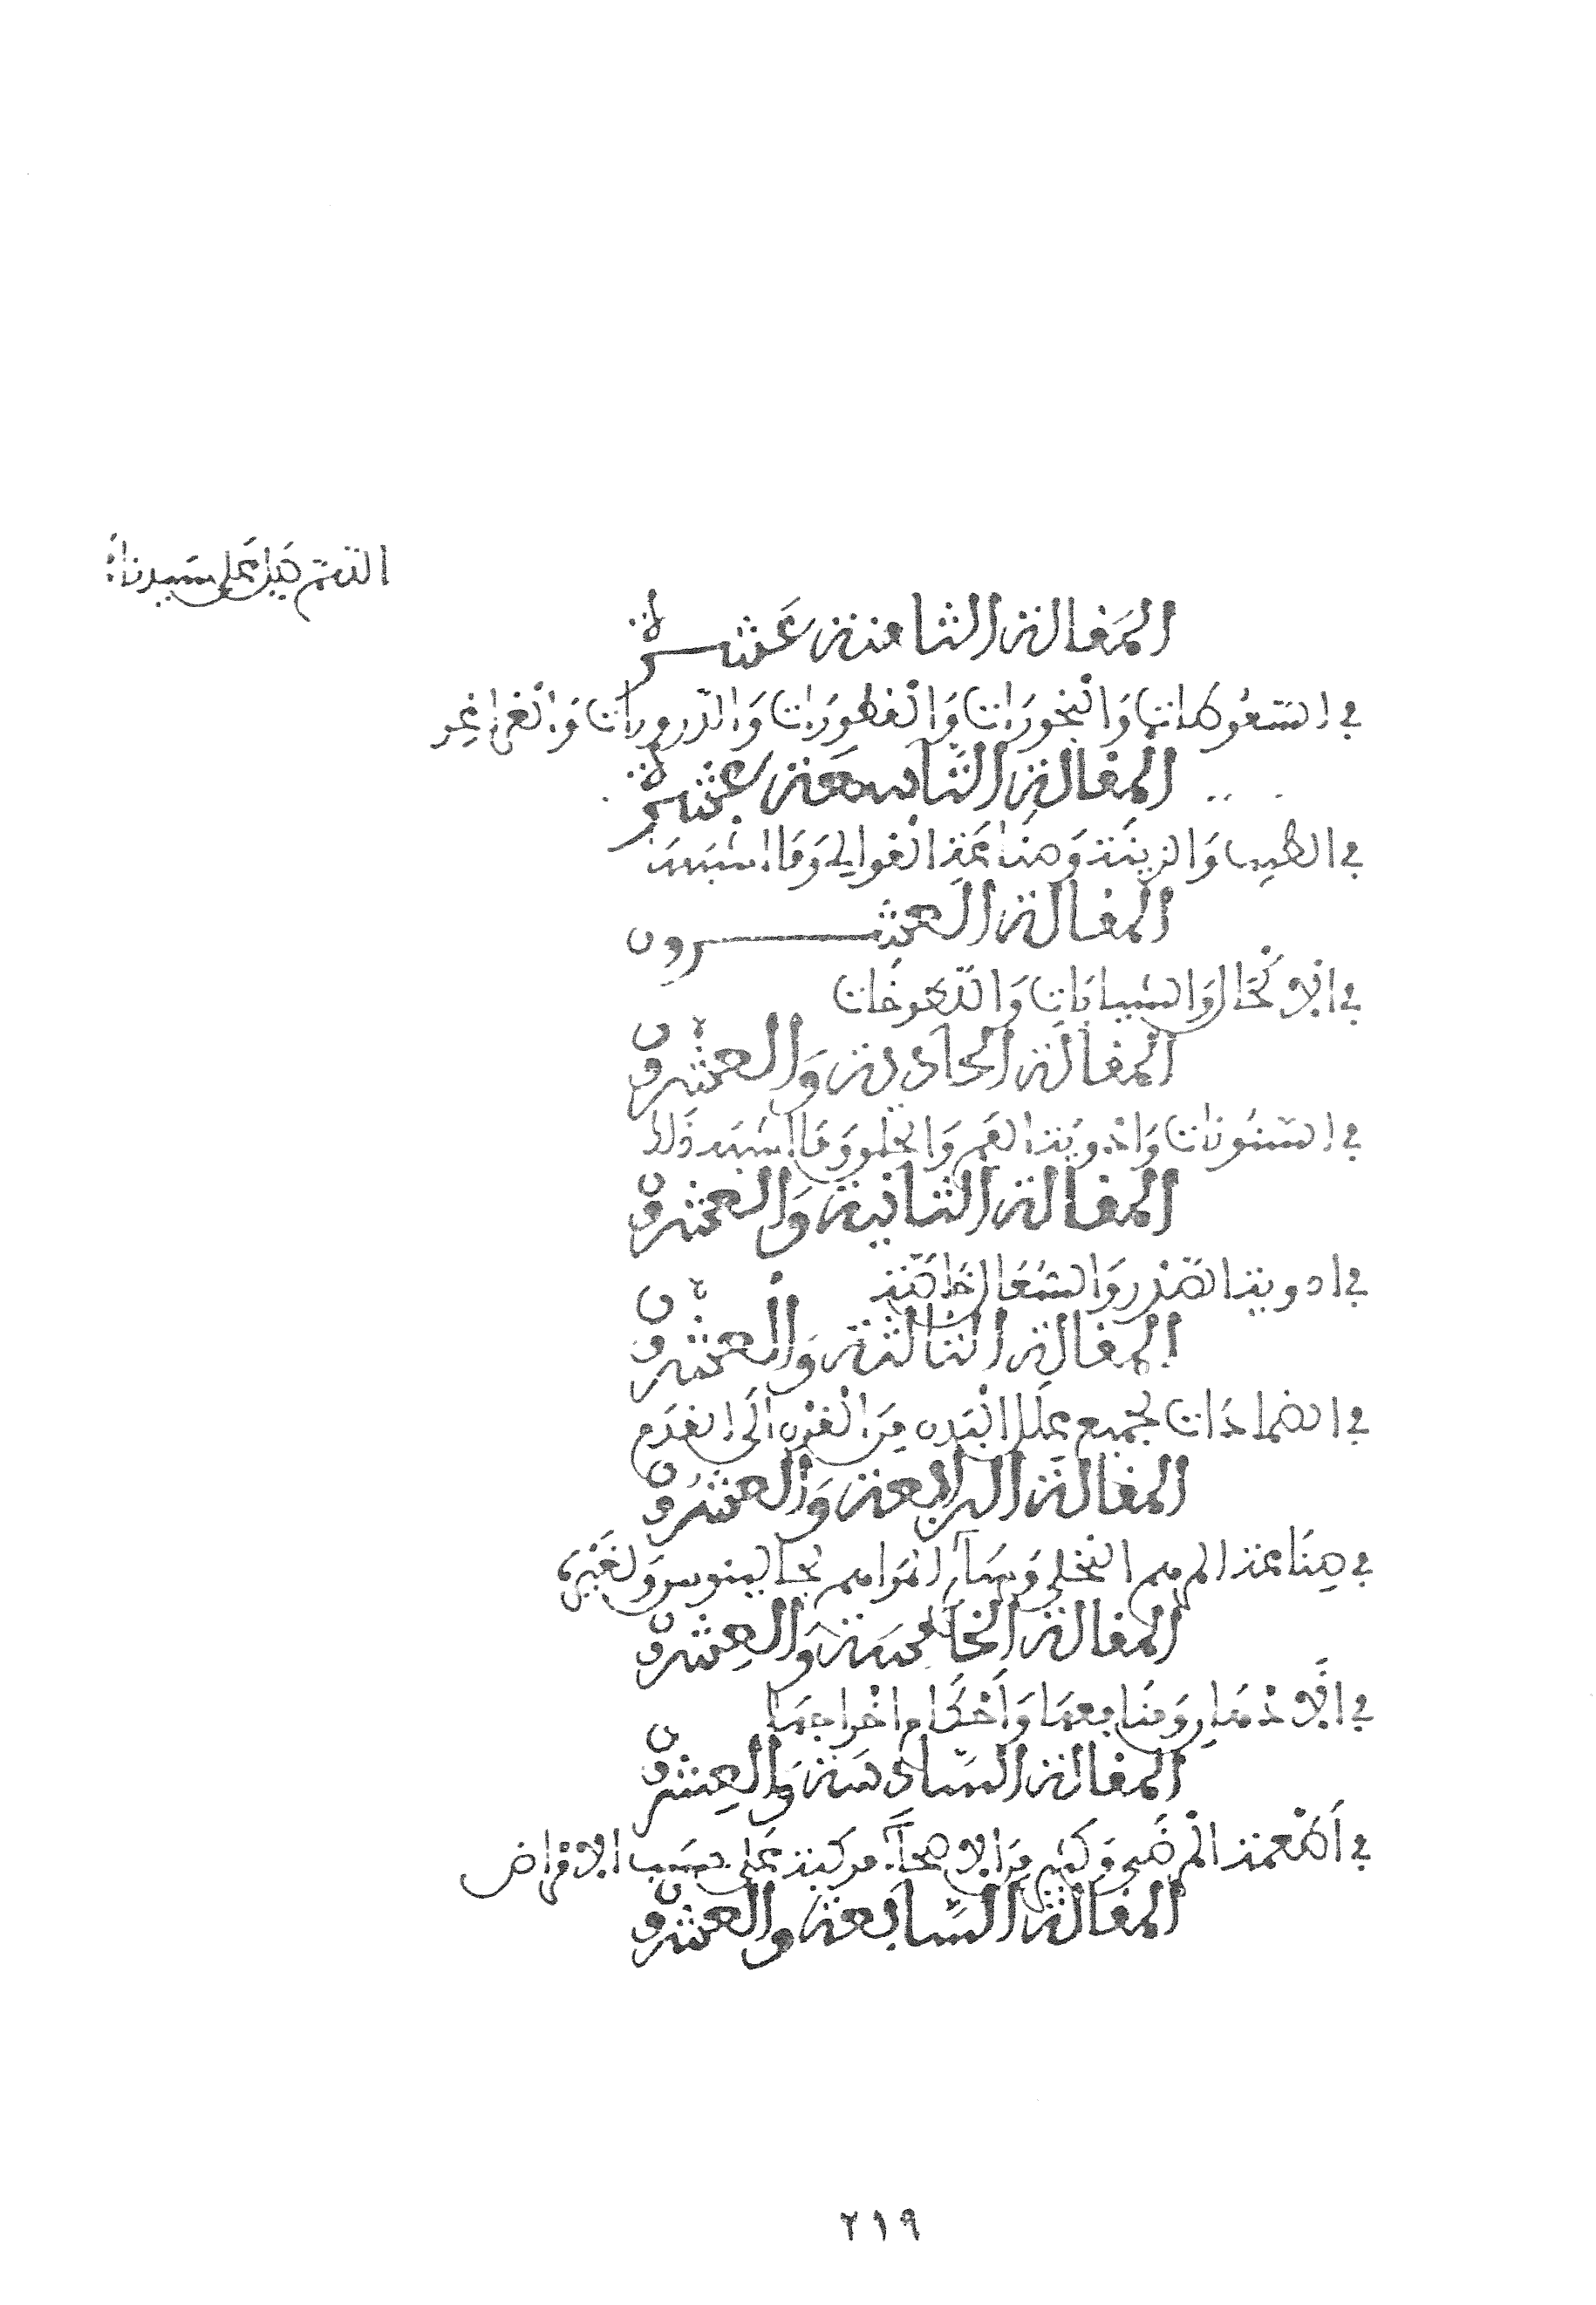 اللهم صل على سيدنا
المَقالة الثامنة عَشرة
في السَّعُوطات وَالبخورَات وَالقطورَات وَالذرورات وَالغراغر
المقالة التاسعة عشرة
في الطيب وَالزينَة وَصنَاعَة الغوالي وَمَا اشبَهَه
المقالة العشرون
في الاكْحَال وَالشيافات وَاللّعُوخَات
المقالة الحادية وَالعشرون
في السَّنُونات وَادوِيَة الفَم وَالحلق وَمَا اشبَه ذَلك
المقالة الثانية وَالعشرون
في ادوية الصّدر وَالسُّعَال خَاصَّة
المقالة الثالثة وَالعشرون
في الضمادَات لجميع عِلَل البَدن مِنَ القَرْن الَى القَدَم
المقالة الرابعة وَالعشرون
في صِنَاعة المرهم النخلي وَسَآئر المَرَاهم لجالينوس وَلغَيْره
المقالة الخَامسَة وَالعِشرون
في الَادْهَان وَمنَافعهَا وَأَحْكَام اخْراجهَا
المقالة السّادسَة وَالعِشرون
في أَطْعمة المرضَى وَكَثير مِنَ الاصحآء مركبة عَلى حسَب الامْراض
المقالة السَّابعة والعشرون
٢١٩